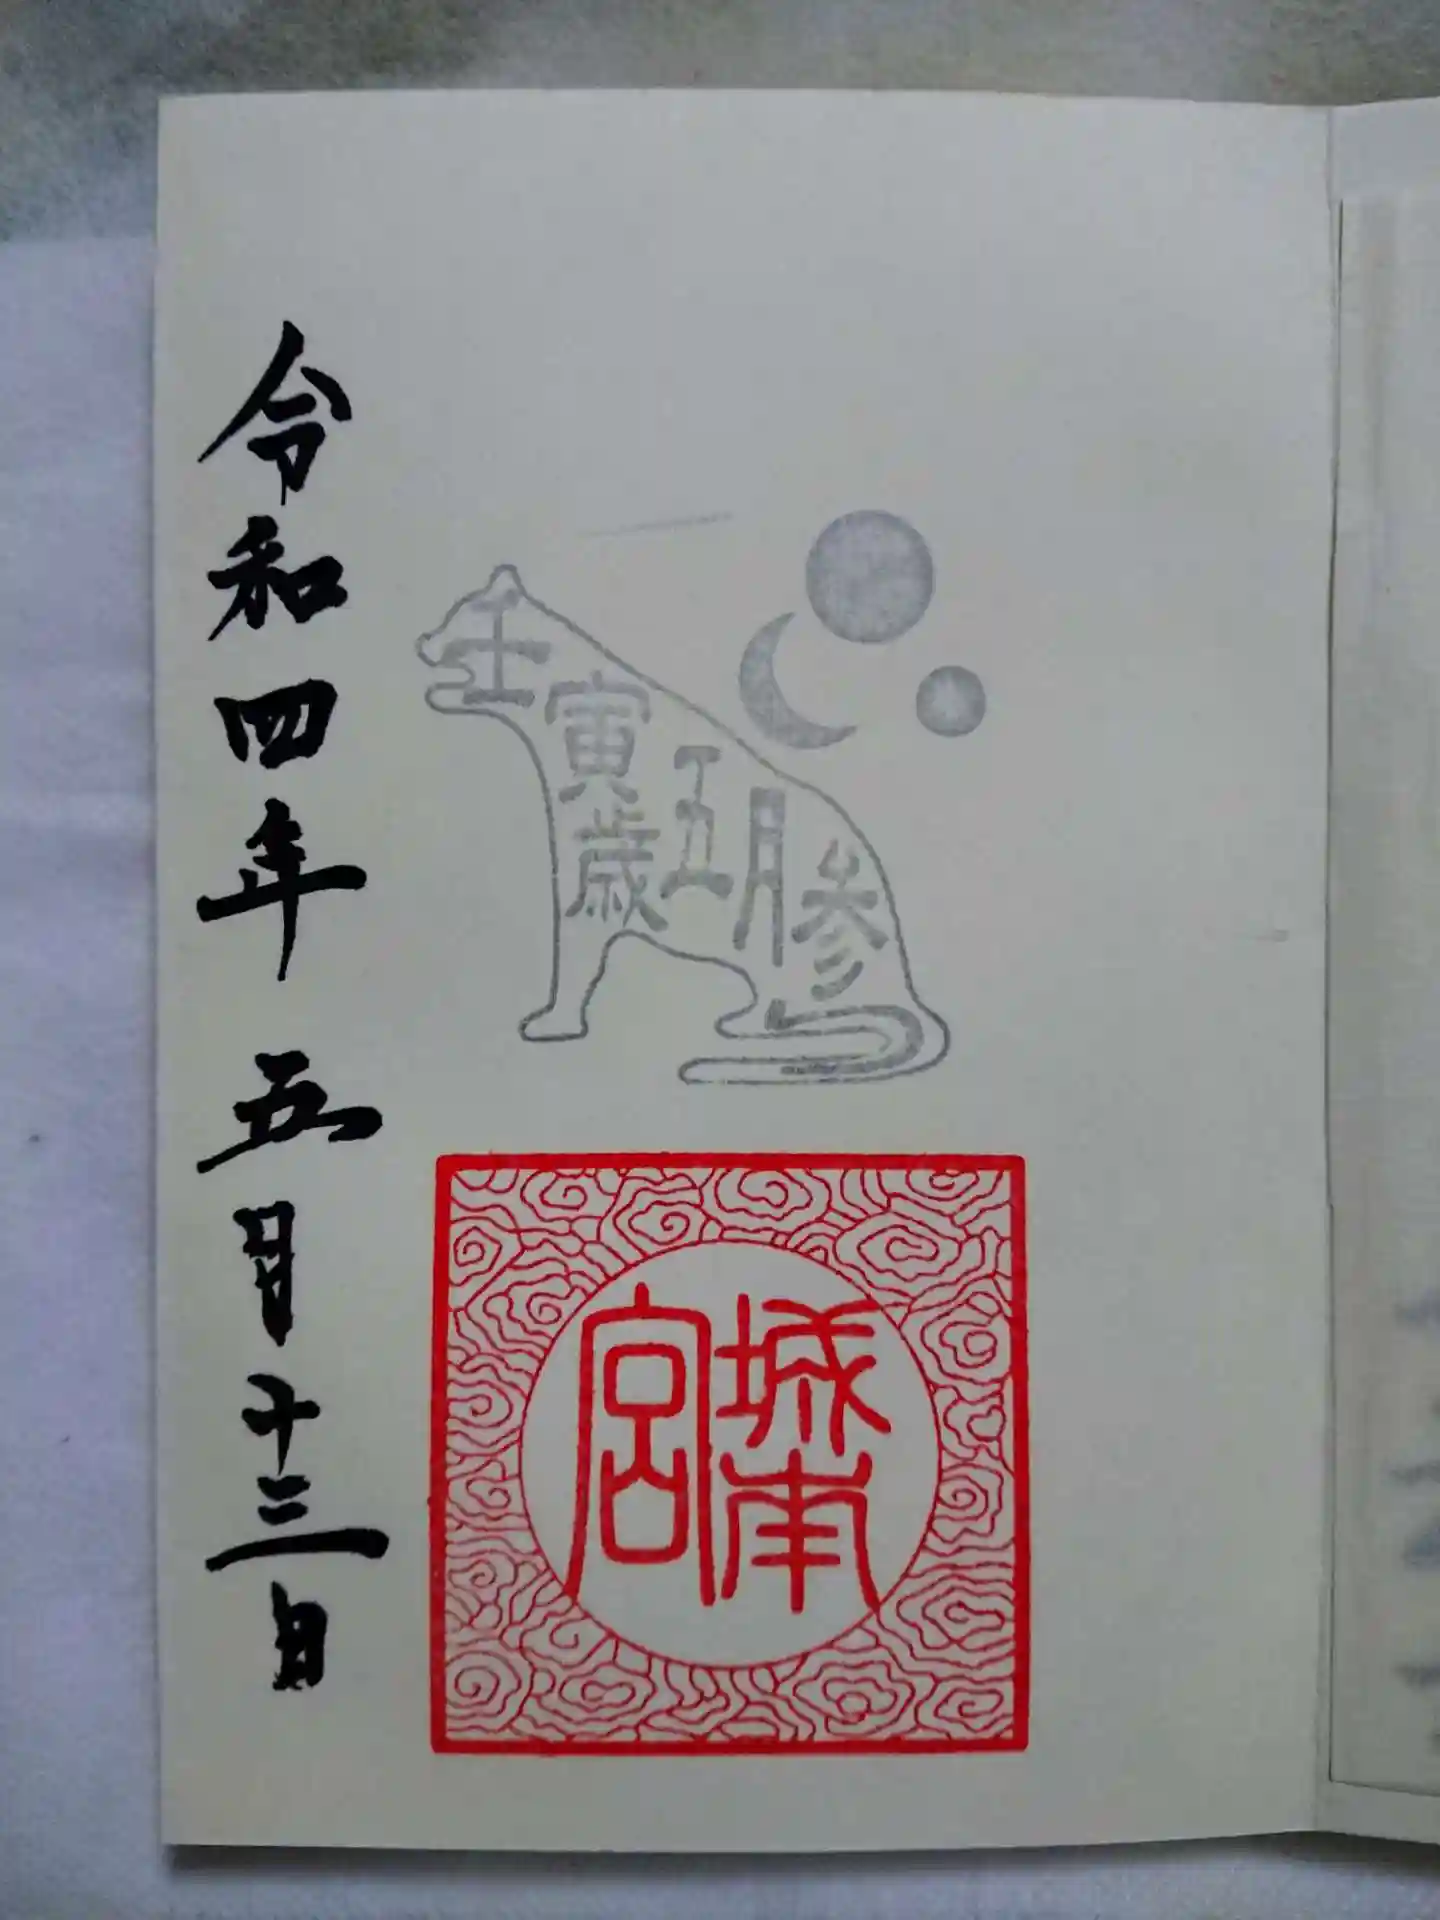 壬寅歳五月参
城南宮
令和四年五月十三日